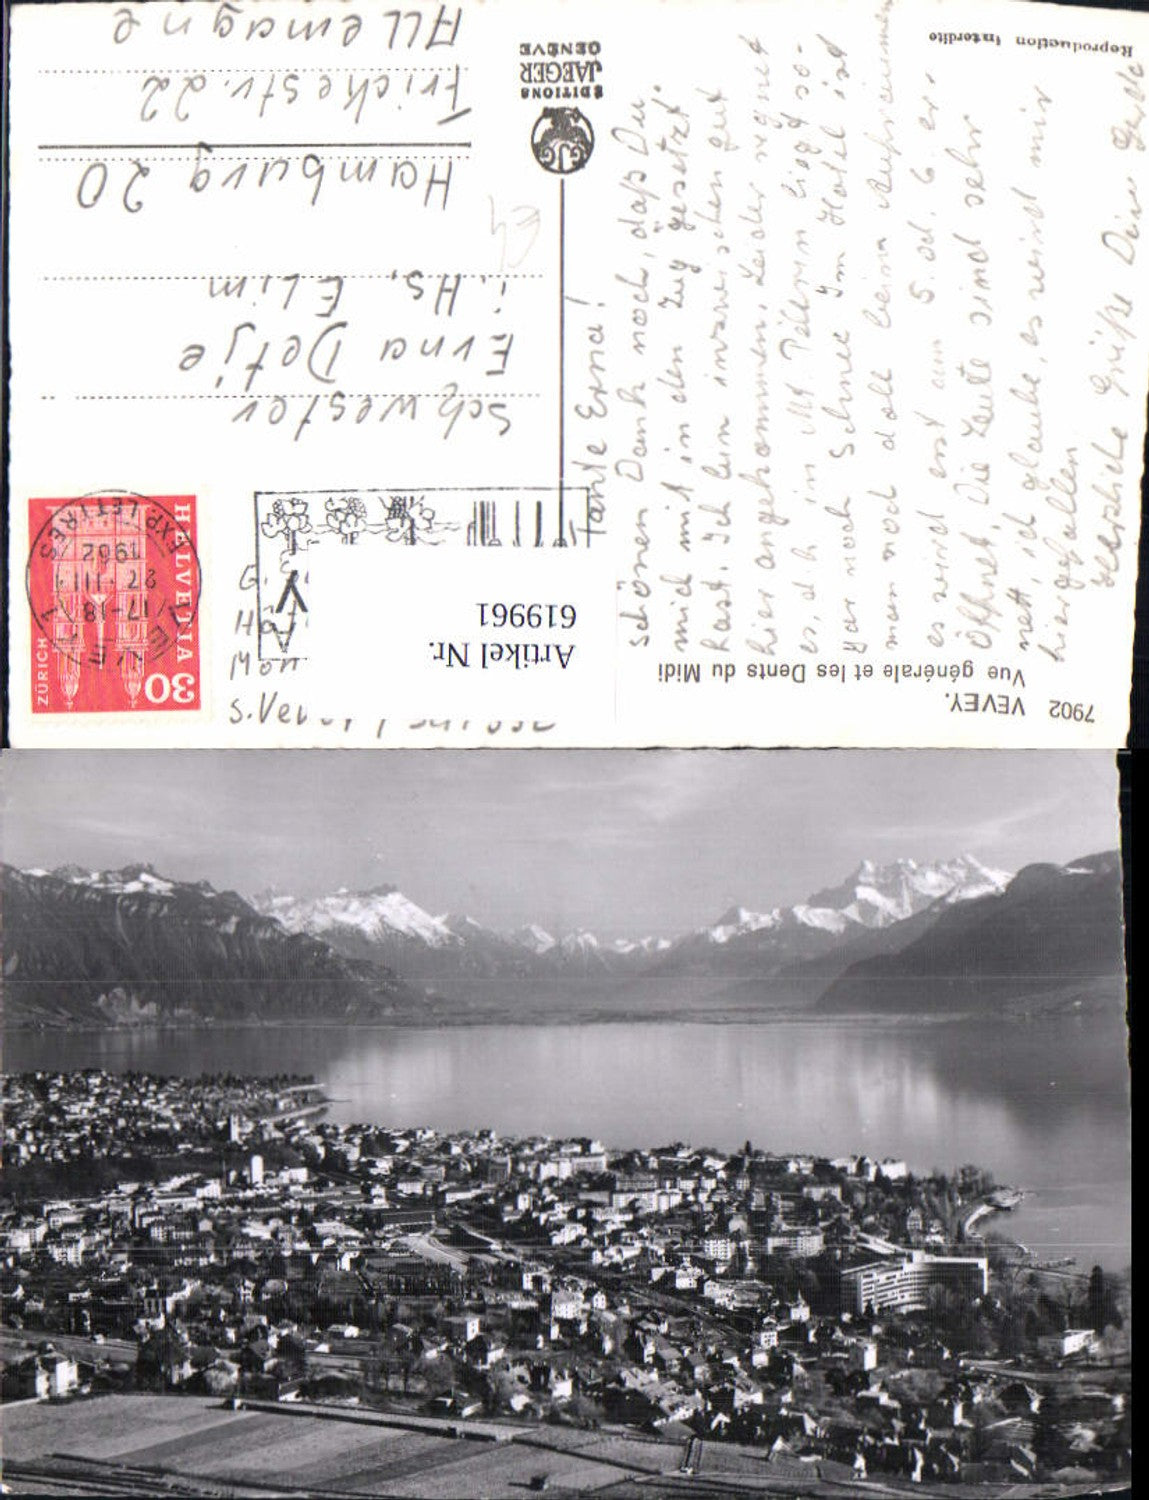 7902 VEVEY.
Vue générale et les Dents du Midi
Artikel Nr.
619961
S. Vev
G.
Tante Erna!
Schönen Dank noch, daß Du
mich mit in den Zug gesetzt
hast. Ich bin inzwischen gut
hier angekommen. Leider regnet
es, d. h. in Mt. Pèlerin liegt so-
gar noch Schnee. Im Hotel ist
man noch doll beim Aufräumen
es wird erst am 5. od. 6. er-
öffnet. Die Leute sind sehr
nett, ich glaube, es wird mir
hier gefallen.
Herzliche Grüße Deine
HELVETIA
30
ZÜRICH
VEVEY 1
17-18
27.III
1962
EXP. LETTRES
Schwester
Erna Detje
i. Hs. Elim
Hamburg 20
Frickestr. 22
Allemagne
GJG
EDITIONS
JAEGER
GENÈVE
Reproduction interdite